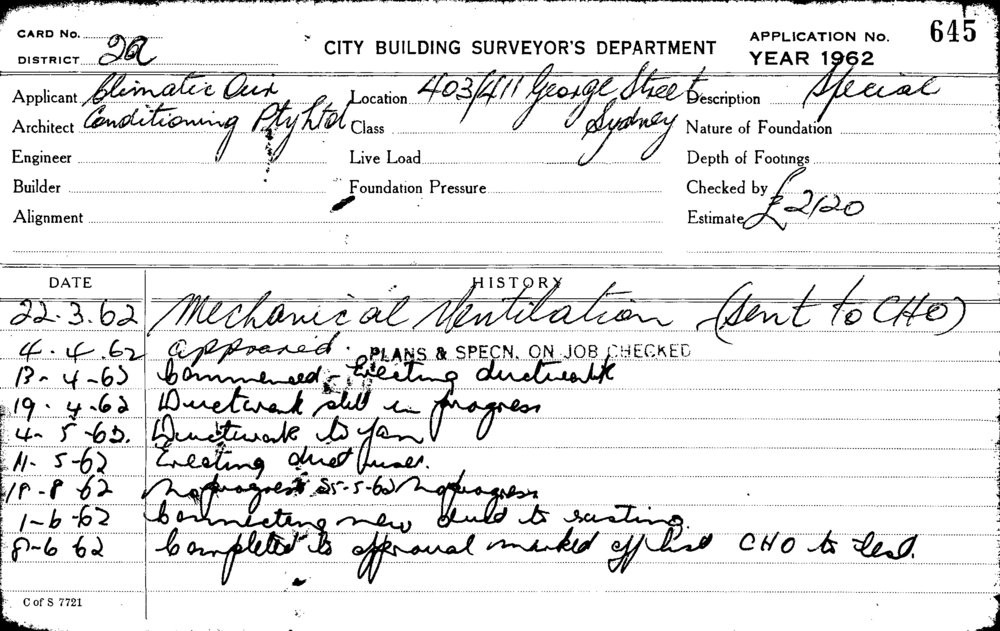 CARD No. 2a CITY BUILDING SURVEYOR'S DEPARTMENT APPLICATION No. 645
DISTRICT YEAR 1962
Applicant Climatic Air Location 403/411 George Street Description Special
Architect Conditioning Pty Ltd Class Sydney Nature of Foundation
Engineer Live Load Depth of Footings
Builder Foundation Pressure Checked by
Alignment Estimate £2120
DATE HISTORY
22.3.62 Mechanical Ventilation (sent to CHO)
4.4.62 approved. PLANS & SPECN. ON JOB CHECKED
13-4-62 Commenced - Erecting ductwork
19.4.62 Ductwork still in progress
4-5-62. Ductwork to fan
11-5-62 Erecting duct
62 No progress 25-5-62 No progress
1-6-62 Connecting new duct to existing.
8-6-62 Completed to approval marked off list CHO to test.
C of S 7721